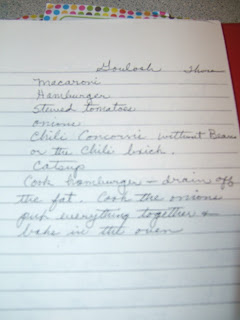 Goulash
Macaroni
Hamburger
stewed tomatoes
onions
Chili Concorni without Beans
or the Chili brick.
Catsup
Cook hamburger – drain off
the fat. Cook the onions
put everything together &
bake in the oven